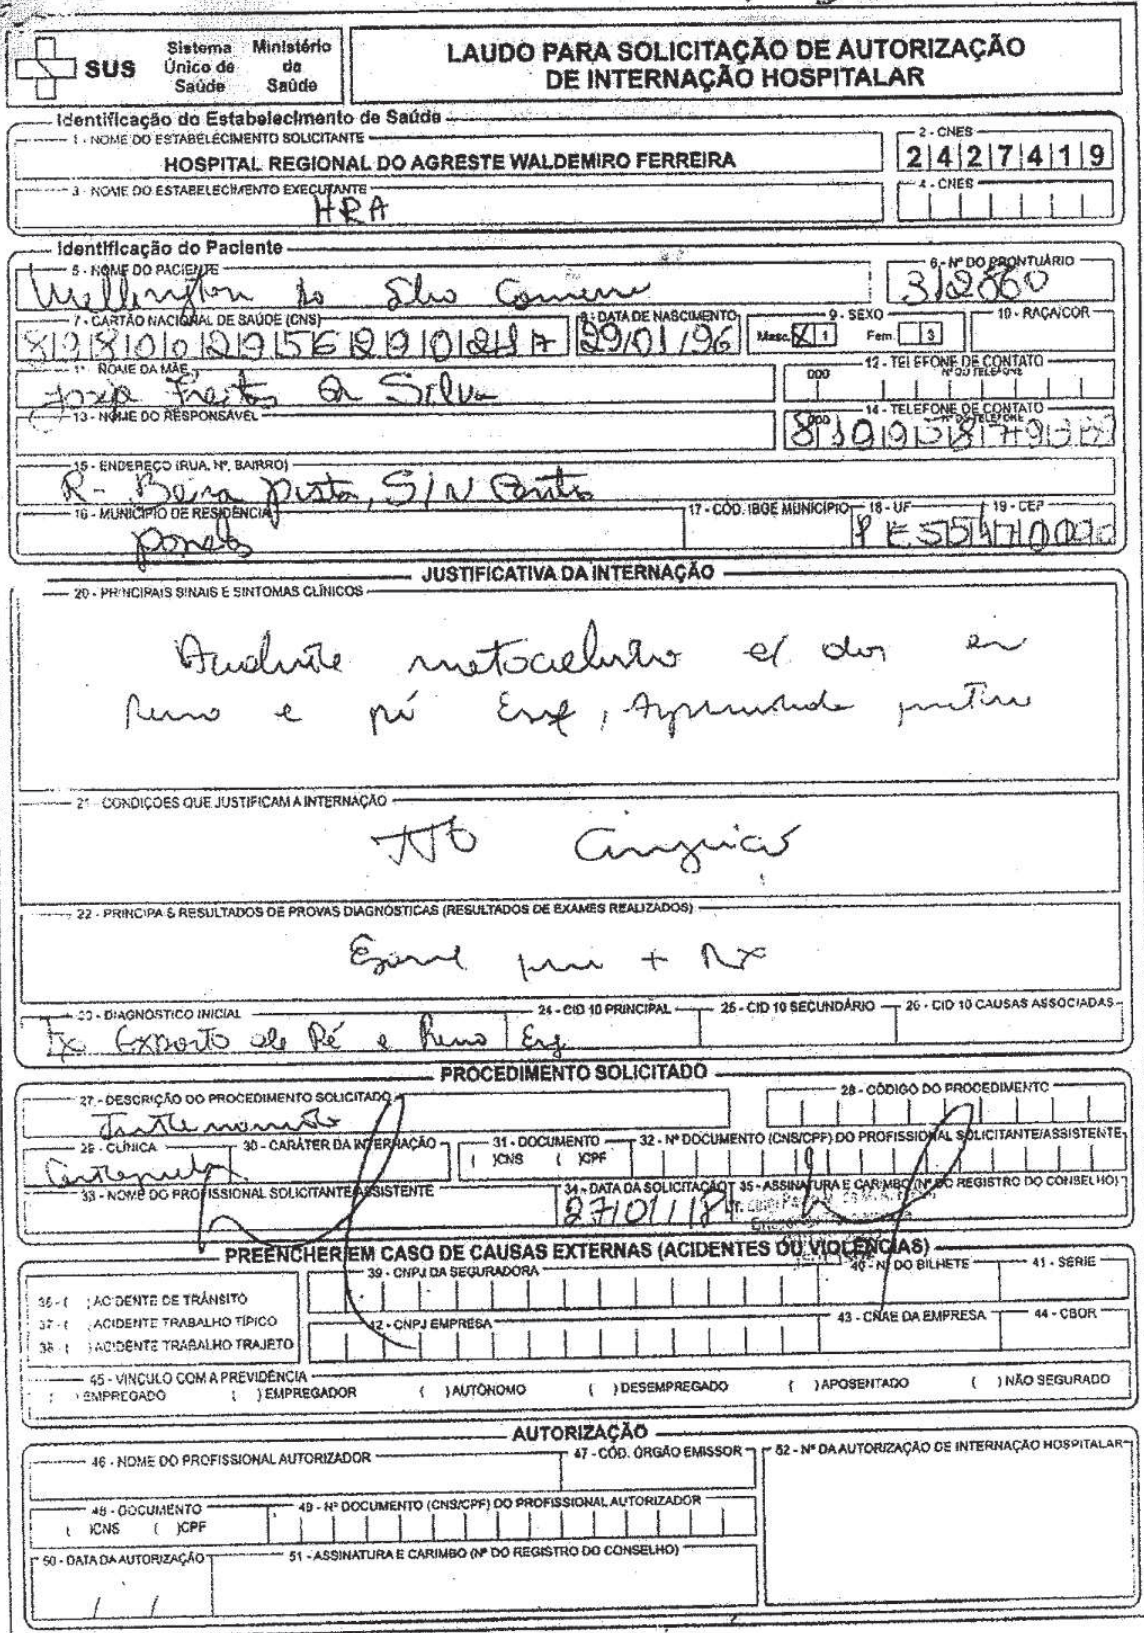 SUS
Sistema Único de Saúde
Ministério da Saúde
LAUDO PARA SOLICITAÇÃO DE AUTORIZAÇÃO
DE INTERNAÇÃO HOSPITALAR
Identificação do Estabelecimento de Saúde
1 - NOME DO ESTABELECIMENTO SOLICITANTE
HOSPITAL REGIONAL DO AGRESTE WALDEMIRO FERREIRA
2 - CNES
2427419
3 - NOME DO ESTABELECIMENTO EXECUTANTE
HRA
4 - CNES
Identificação do Paciente
5 - NOME DO PACIENTE
Wellington da Silva
6 - Nº DO PRONTUÁRIO
7 - CARTÃO NACIONAL DE SAÚDE (CNS)
8 - DATA DE NASCIMENTO
29/01/96
9 - SEXO
Masc. X 1 Fem. 3
10 - RAÇA/COR
11 - NOME DA MÃE
Freitas Silva
12 - TELEFONE DE CONTATO
DDD Nº DO TELEFONE
13 - NOME DO RESPONSÁVEL
14 - TELEFONE DE CONTATO
DDD Nº DO TELEFONE
15 - ENDEREÇO (RUA, Nº, BAIRRO)
R - Beira pista, S/N
16 - MUNICÍPIO DE RESIDÊNCIA
17 - CÓD. IBGE MUNICÍPIO
18 - UF
PE
19 - CEP
JUSTIFICATIVA DA INTERNAÇÃO
20 - PRINCIPAIS SINAIS E SINTOMAS CLÍNICOS
c/ dor em
e pé Esq,
21 - CONDIÇÕES QUE JUSTIFICAM A INTERNAÇÃO
TTO Cirúrgico
22 - PRINCIPAIS RESULTADOS DE PROVAS DIAGNÓSTICAS (RESULTADOS DE EXAMES REALIZADOS)
+ RX
23 - DIAGNÓSTICO INICIAL
Fx Exposto de Pé e Esq
24 - CID 10 PRINCIPAL
25 - CID 10 SECUNDÁRIO
26 - CID 10 CAUSAS ASSOCIADAS
PROCEDIMENTO SOLICITADO
27 - DESCRIÇÃO DO PROCEDIMENTO SOLICITADO
28 - CÓDIGO DO PROCEDIMENTO
29 - CLÍNICA
30 - CARÁTER DA INTERNAÇÃO
31 - DOCUMENTO
( )CNS ( )CPF
32 - Nº DOCUMENTO (CNS/CPF) DO PROFISSIONAL SOLICITANTE/ASSISTENTE
33 - NOME DO PROFISSIONAL SOLICITANTE/ASSISTENTE
34 - DATA DA SOLICITAÇÃO
27/01/18
35 - ASSINATURA E CARIMBO (Nº DO REGISTRO DO CONSELHO)
PREENCHER EM CASO DE CAUSAS EXTERNAS (ACIDENTES OU VIOLÊNCIAS)
36 - ( ) ACIDENTE DE TRÂNSITO
37 - ( ) ACIDENTE TRABALHO TÍPICO
38 - ( ) ACIDENTE TRABALHO TRAJETO
39 - CNPJ DA SEGURADORA
40 - Nº DO BILHETE
41 - SÉRIE
42 - CNPJ EMPRESA
43 - CNAE DA EMPRESA
44 - CBOR
45 - VÍNCULO COM A PREVIDÊNCIA
( ) EMPREGADO ( ) EMPREGADOR ( ) AUTÔNOMO ( ) DESEMPREGADO ( ) APOSENTADO ( ) NÃO SEGURADO
AUTORIZAÇÃO
46 - NOME DO PROFISSIONAL AUTORIZADOR
47 - CÓD. ÓRGÃO EMISSOR
52 - Nº DA AUTORIZAÇÃO DE INTERNAÇÃO HOSPITALAR
48 - DOCUMENTO
( )CNS ( )CPF
49 - Nº DOCUMENTO (CNS/CPF) DO PROFISSIONAL AUTORIZADOR
50 - DATA DA AUTORIZAÇÃO
/ /
51 - ASSINATURA E CARIMBO (Nº DO REGISTRO DO CONSELHO)